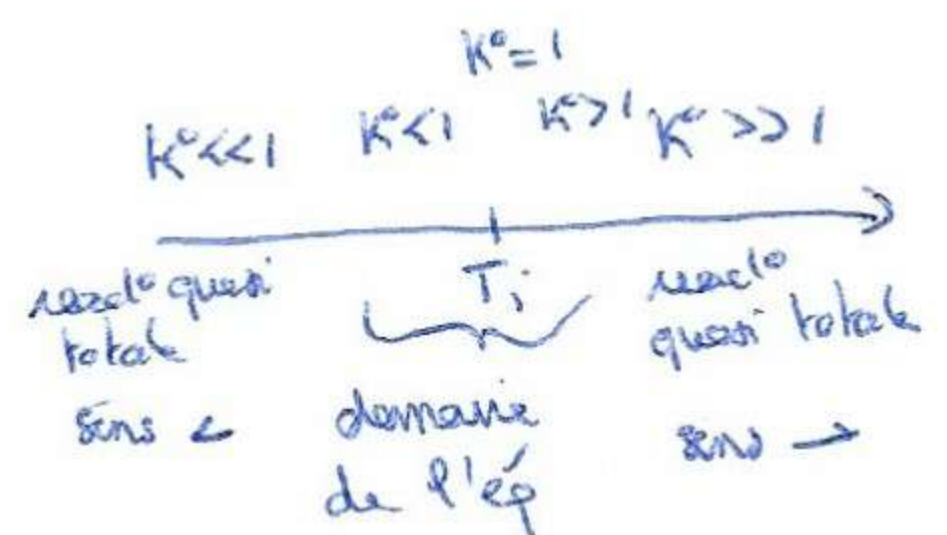 K° = 1
K° << 1 K° < 1 K° > 1 K° >> 1
Ti
réact° quasi totale
sens ←
domaine de l'éq
réact° quasi totale
sens →